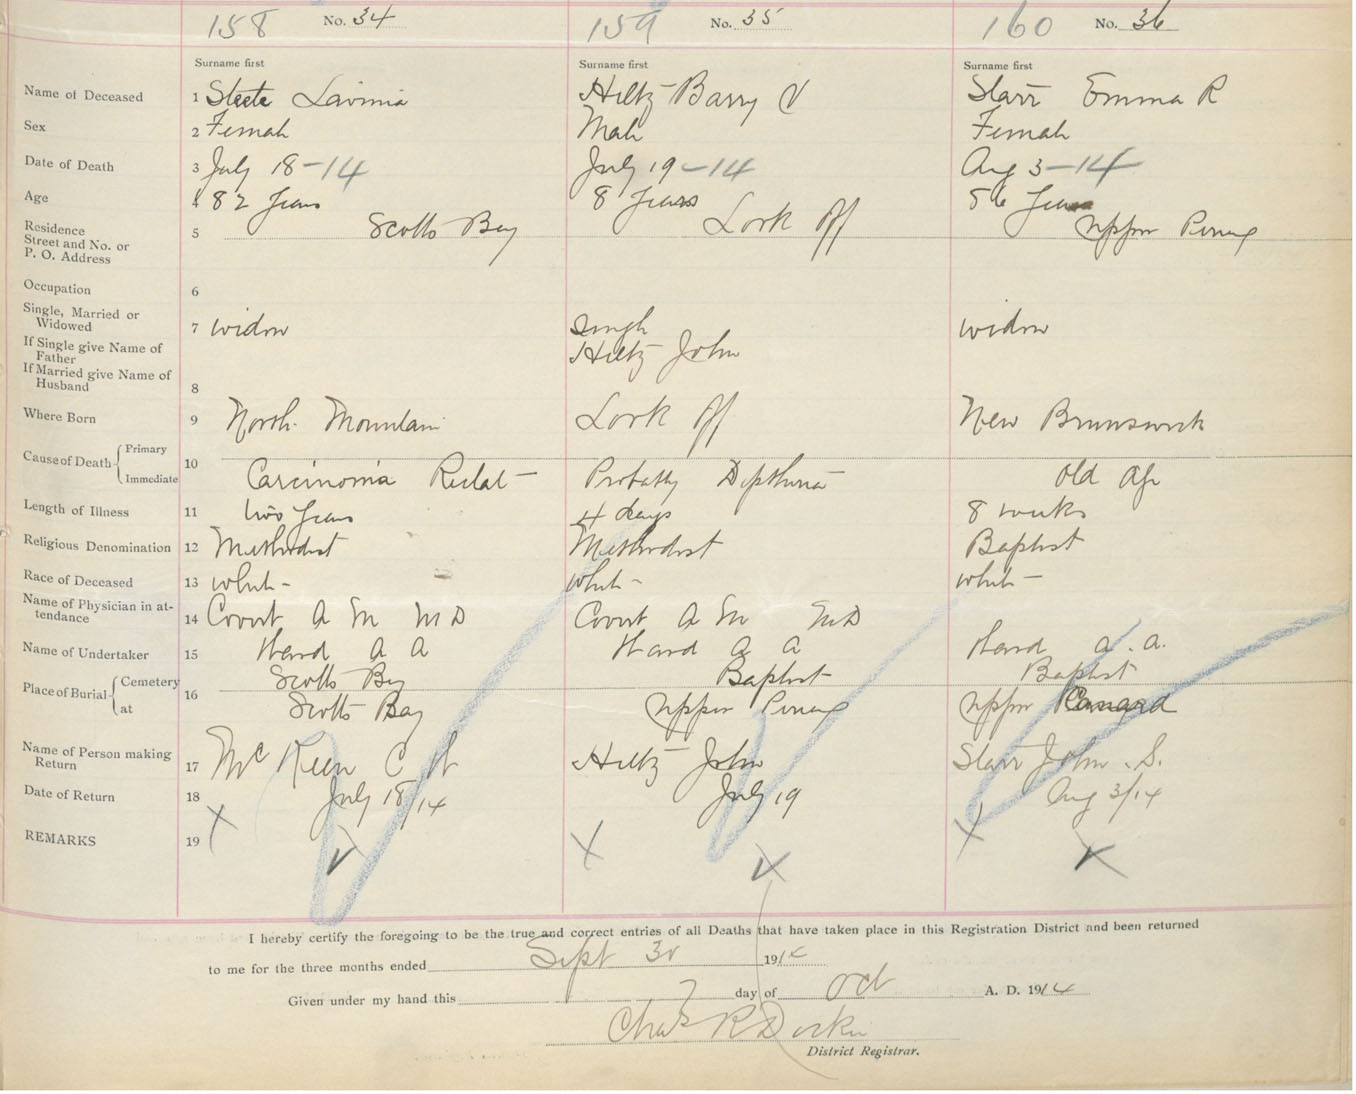 158 No. 34 159 No. 35 160 No. 36
Surname first Surname first Surname first
Name of Deceased 1 Steele Lavinia Hiltz Barry V Starr Emma R
Sex 2 Female Male Female
Date of Death 3 July 18-14 July 19-14 Aug 3-14
Age 4 82 Years 8 Years 86 Years
Residence
Street and No. or
P. O. Address
5 Scotts Bay Look Off Upper Pereau
Occupation 6
Single, Married or
Widowed
7 widow Single widow
If Single give Name of
Father
Hiltz John
If Married give Name of
Husband
8
Where Born 9 North Mountain Look Off New Brunswick
Cause of Death Primary
Immediate
10 Carcinoma Rectal Probably Diptheria Old Age
Length of Illness 11 two Years 4 days 8 weeks
Religious Denomination 12 Methodist Methodist Baptist
Race of Deceased 13 white white white
Name of Physician in at-
tendance
14 Covert A M M D Covert A M M D
Name of Undertaker 15 Hand A A Hand A A Hand A. A.
Place of Burial Cemetery
at
16 Scotts Bay Baptist Baptist
Scotts Bay Upper Pereau Upper Canard
Name of Person making
Return
17 McKeen C H Hiltz John Starr John S.
Date of Return 18 July 18/14 July 19 Aug 3/14
REMARKS 19 X X X
I hereby certify the foregoing to be the true and correct entries of all Deaths that have taken place in this Registration District and been returned
to me for the three months ended Sept 30 1914
Given under my hand this 7 day of Oct A. D. 1914
Chas R
District Registrar.